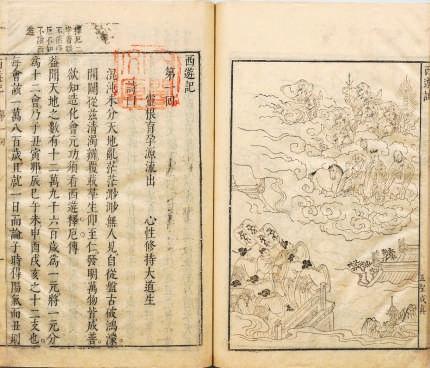 西遊記
五聖成真
西遊記
第一回
靈根育孕源流出 心性修持大道生
詩曰
混沌未分天地亂茫茫渺渺無人見自從盤古破鴻濛
開闢從茲清濁辨覆載羣生仰至仁發明萬物皆成善
欲知造化會元功須看西遊釋厄傳
蓋聞天地之數有十二萬九千六百歲爲一元將一元分
爲十二會乃子丑寅卯辰巳午未申酉戌亥之十二支也
每會該一萬八百歲且就一日而論子時得陽氣而丑則
釋厄二
字着眼
不能釋
厄不如
不讀西
遊
西遊記